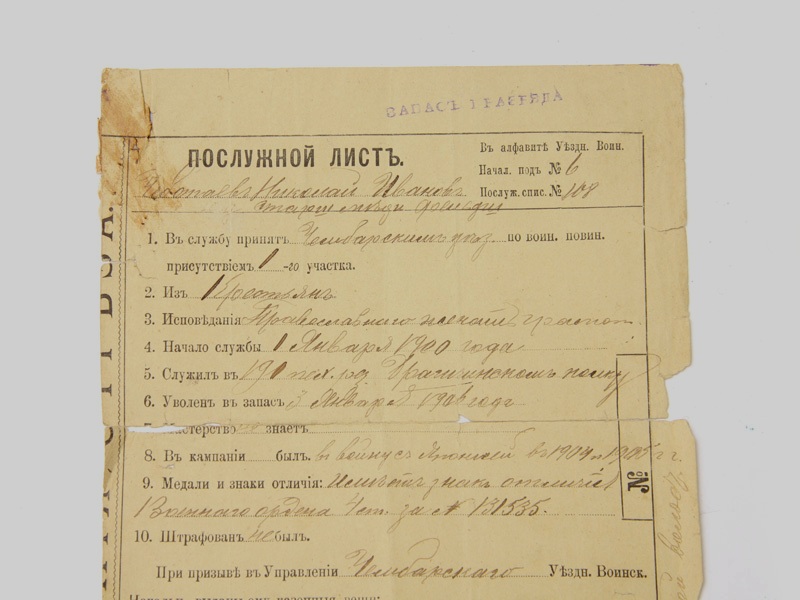 ЗАПАСЪ 1 РАЗРЯДА
ПОСЛУЖНОЙ ЛИСТЪ.
Въ алфавитѣ Уѣздн. Воин.
Начал. подъ № 6
Послуж. спис. № 108
Николай Ивановъ
1. Въ службу принятъ Чембарскимъ уѣз. по воин. повин.
присутствіемъ 1 -го участка.
2. Изъ Крестьянъ
3. Исповѣданія Православнаго женатъ грамот.
4. Начало службы 1 Января 1900 года
5. Служилъ въ 190 пѣх. полку
6. Уволенъ въ запасъ Января года
7. Мастерство не знаетъ
8. Въ кампаніи былъ. въ войну съ Японіей въ 1904 и 1905 г г.
9. Медали и знаки отличія: Имѣетъ знакъ отличія
Военнаго ордена 4 ст. за № 131535.
10. Штрафованъ не былъ.
При призывѣ въ Управленіи Чембарскаго Уѣздн. Воинск.
№